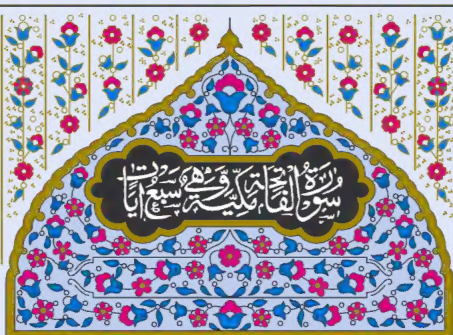 سُورَةُ الْفَاتِحَةِ مَكِّيَّةٌ وَهِيَ سَبْعُ آيَاتٍ